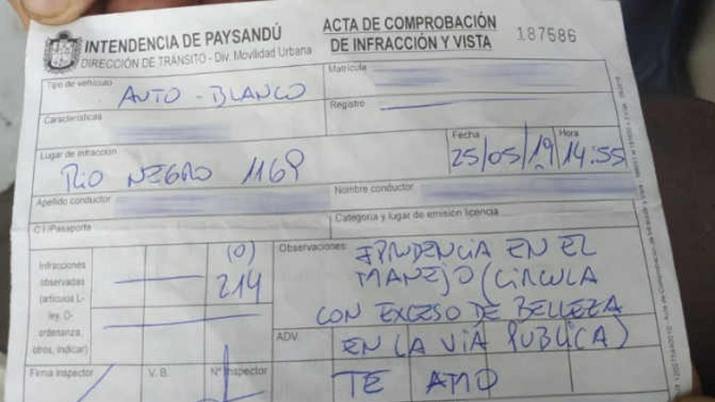 INTENDENCIA DE PAYSANDÚ
DIRECCIÓN DE TRÁNSITO - Div. Movilidad Urbana
ACTA DE COMPROBACIÓN
DE INFRACCIÓN Y VISTA
187586
Tipo de vehículo
AUTO - BLANCO
Matrícula
Características
Registro
Lugar de infracción
RIO NEGRO 1169
Fecha
25/05/19
Hora
14:55
Apellido conductor
Nombre conductor
C.I/Pasaporte
Categoría y lugar de emisión licencia
Infracciones
observadas
(artículos L-
ley, D-
ordenanza,
otros, indicar)
(0)
214
Observaciones:
EN EL
MANEJO (CIRCULA
CON EXCESO DE BELLEZA
ADV.
EN LA VIA PUBLICA)
Firma Inspector
V. B.
Nº Inspector
TE AMO